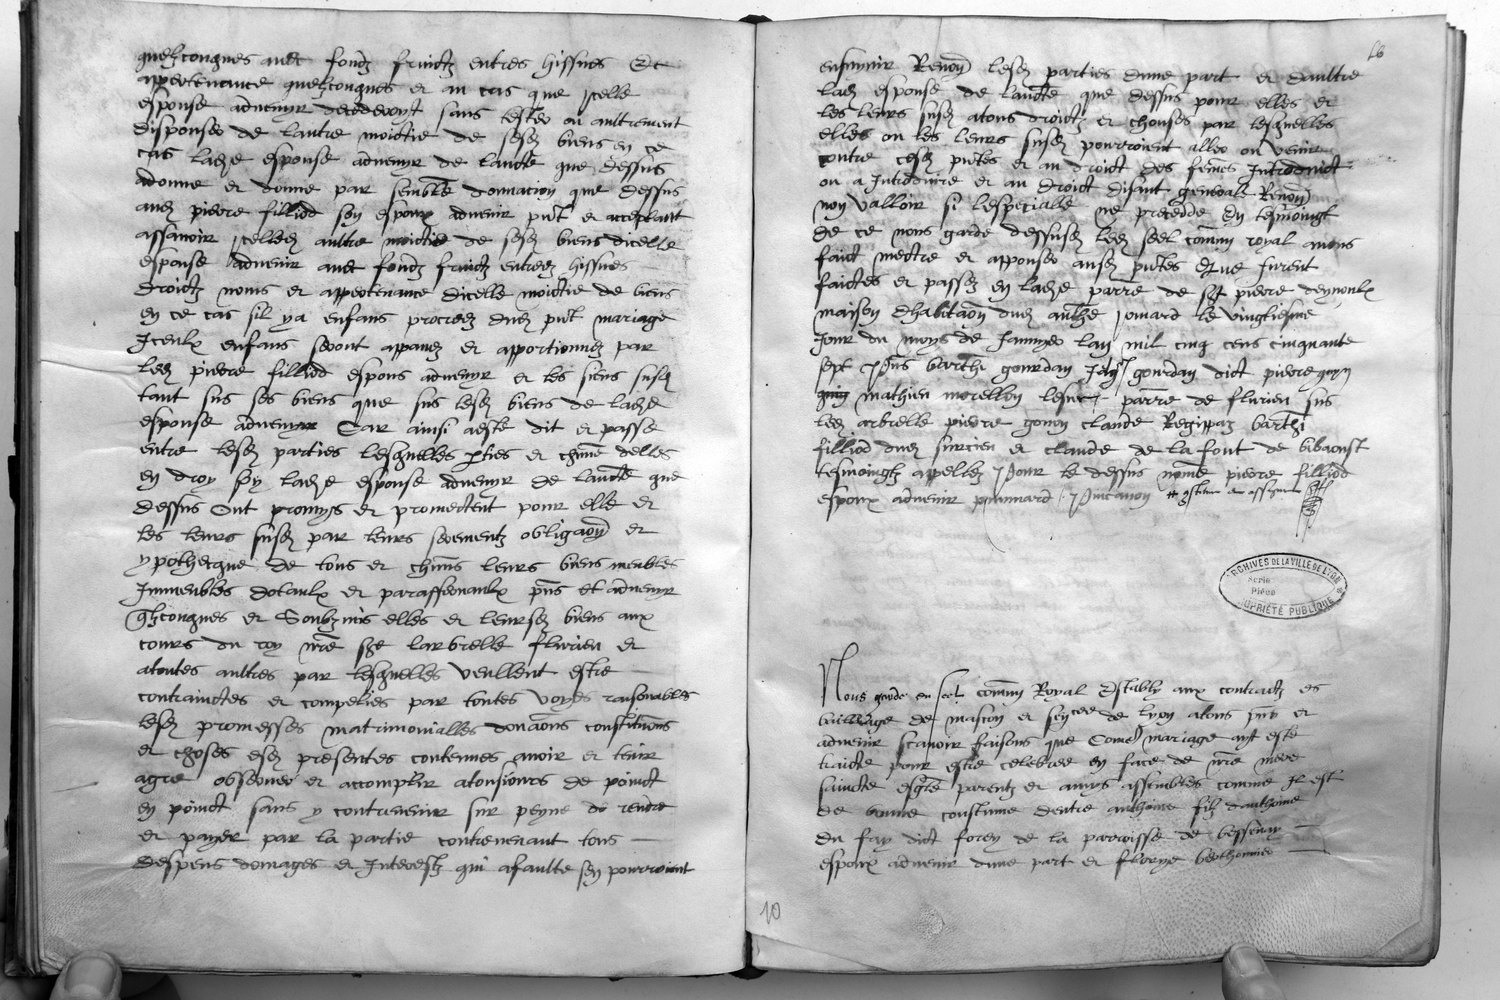 quelzconques avec fondz fruictz entrees hissues Et
appertenance quelzconques et au cas que Icelle
espouse advenyr decedevoyt sans tester ou aultrement
disposer de lautre moictie de sesd biens en ce
cas ladte espouse advenyr de laucte que dessus
a donne et donne par semble donnacion que dessus
aud pierre filliod son espoux advenir pnt et acceptant
assavoir Icelled aultre moictie de sesd biens dicelle
espouse advenir avec fondz fruictz entrees hissues
droictz noms et appertenance dicelle moictie de biens
en ce cas sil y a enfans procreez dud pnt mariage
Iceulx enfans seront appanez et apportionnez par
led pierre filliod espoux advenyr et les siens susd
tant sus ses biens que sus lesd biens de ladte
espouse advenyr Car ainsi aeste dit et passe
entre lesd parties lesquelles pties et chune delles
en droy soy ladte espouse advenyr de laucte que
dessus Ont promys et promectent pour elle et
les leurs susd par leurs serementz obligaon et
ypothecque de tous et chuns leurs biens meubles
Immeubles dotaulx et paraffernaulx pns et advenyr
qlzconques et Soubzmis elles et leursd biens aux
cours du roy nre sre larbrelle flurieu et
atoutes aultres par lesquelles veullent estre
contrainctes et compellies par toutes voyes raisonables
lesd promesses matrimonialles donaons constitutions
et choses esd presentes contenues avoir et tenir
agre observer et accomplir atousiours de poinct
en poinct sans y contrevenir sur peyne de rendre
et payer par la partie contrevenant tous
despens domages et Interestz qui a faulte sen pourroient
ensuivir Renon lesd parties dune part et daultre
lad espouse de laucte que dessus pour elles et
les leurs susd atous droictz et chouses par lesquelles
elles ou les leurs susd pourroient aller ou venir
contre cesd pntes et au droict des femes Introduict
ou a Introduire et au droict disant generale Renon
non valloir si lespecialle ne precedde En tesmoingt
de ce nous garde dessusd led seel comun royal avons
faict mectre et apposer ausd pntes Que furent
faictes et passez en ladte parre de sct pierre
maison dhabitaon dud anthe Jomard le vingtiesme
Jour du moys de Janvyer lan mil cinq cens cinquante
sept pns barthi gourdan gourdan dict pierregoyn
mathieu morellon parre de flurieu sus
led arbrelle pierre gonon claude barthi
filliod dud surcieu et claude de la font de bibaost
tesmoingtz appellez Pour le dessus nome pierre filliod
espoux advenir
ARCHIVES DE LA VILLE DE LYON
Serie
Pièce
PROPRIÉTÉ PUBLIQUE
Nous garde du seel comun Royal Establi aux contractz es
bailliage de mascon et senecee de lyon atous pns et
advenir scavoir faisons que Come mariage ayt este
traicte pour estre celebree en face de nre mere
saincte esglise parentz et amys assembles comme Il est
de bonne coustume dentre anthoine filz danthoine
du fay dict forey de la parroisse de bessenay
espoux advenir dune part et florye berthomier
10